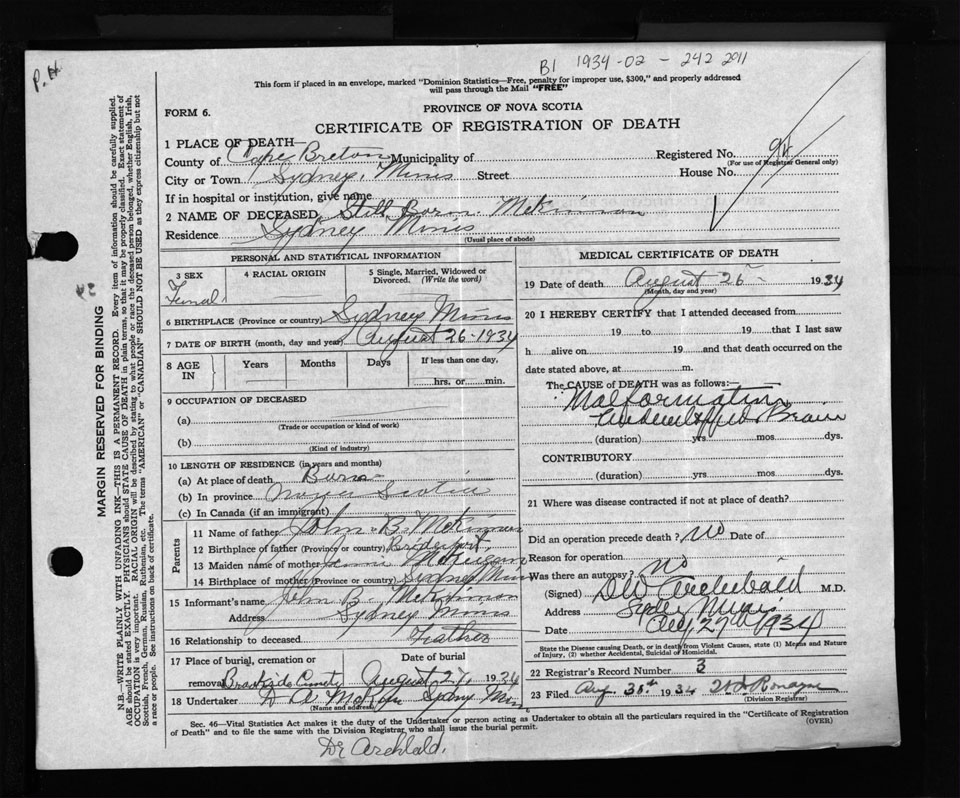 P.H
B1 1934-02 - 242 2911
This form if placed in an envelope, marked "Dominion Statistics—Free, penalty for improper use, $300," and properly addressed
will pass through the Mail "FREE"
FORM 6.
PROVINCE OF NOVA SCOTIA
CERTIFICATE OF REGISTRATION OF DEATH
1 PLACE OF DEATH—
County of Cape Breton Municipality of
Registered No.
(For use of Registrar General only)
City or Town Sydney Mines Street House No.
If in hospital or institution, give name
2 NAME OF DECEASED Still Born McKinnon
Residence Sydney Mines
(Usual place of abode)
PERSONAL AND STATISTICAL INFORMATION
3 SEX Femal
4 RACIAL ORIGIN
5 Single, Married, Widowed or
Divorced. (Write the word)
6 BIRTHPLACE (Province or country) Sydney Mines
7 DATE OF BIRTH (month, day and year) August 26-1934
8 AGE IN Years Months Days If less than one day,
hrs. or min.
9 OCCUPATION OF DECEASED
(a)
(Trade or occupation or kind of work)
(b)
(Kind of industry)
10 LENGTH OF RESIDENCE (in years and months)
(a) At place of death
(b) In province Nova Scotia
(c) In Canada (if an immigrant)
Parents
11 Name of father John B. McKinnon
12 Birthplace of father (Province or country) Bridgeport
13 Maiden name of mother
14 Birthplace of mother (Province or country) Sydney Min
15 Informant's name John B. McKinnon
Address Sydney Mines
16 Relationship to deceased Father
17 Place of burial, cremation or
removal Date of burial
August 27, 1934
18 Undertaker D A Sydney Min
(Name and address)
MEDICAL CERTIFICATE OF DEATH
19 Date of death August 25 - 1934
(Month, day and year)
20 I HEREBY CERTIFY that I attended deceased from
19 to 19 that I last saw
h alive on 19 and that death occurred on the
date stated above, at m.
The CAUSE OF DEATH was as follows:—
Malformation
Brain
(duration) yrs mos dys.
CONTRIBUTORY
(duration) yrs mos dys.
21 Where was disease contracted if not at place of death?
Did an operation precede death? No Date of
Reason for operation
Was there an autopsy? No
(Signed) DW Archibald M.D.
Address Sydney Mines
Date Aug 27th 1934
State the Disease causing Death, or in death from Violent Causes, state (1) Means and Nature
of Injury, (2) whether Accidental, Suicidal or Homicidal.
22 Registrar's Record Number 3
23 Filed Aug 1934
(Division Registrar)
Sec. 46—Vital Statistics Act makes it the duty of the Undertaker or person acting as Undertaker to obtain all the particulars required in the "Certificate of Registration
of Death" and to file the same with the Division Registrar, who shall issue the burial permit.
(OVER)
Dr Archibald.
MARGIN RESERVED FOR BINDING
N.B.—WRITE PLAINLY WITH UNFADING INK—THIS IS A PERMANENT RECORD. Every item of information should be carefully supplied.
AGE should be stated EXACTLY. PHYSICIANS should STATE CAUSE OF DEATH in plain terms, so that it may be properly classified. Exact statement of
OCCUPATION is very important. RACIAL ORIGIN will be described by stating to what people or race the deceased person belonged, whether English, Irish,
Scottish, French, German, Russian, Ruthenian, etc. The terms "AMERICAN" or "CANADIAN" SHOULD NOT BE USED as they express citizenship but not
a race or people. See instructions on back of certificate.